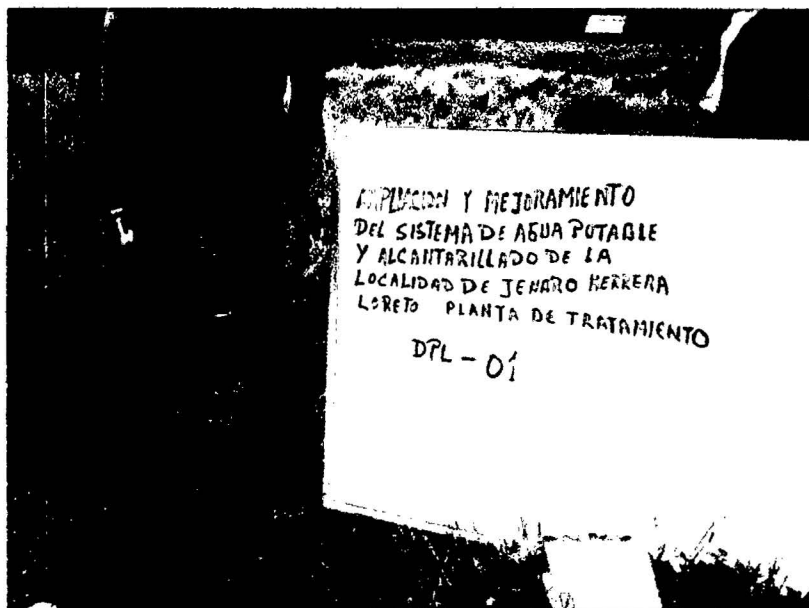 AMPLIACION Y MEJORAMIENTO
DEL SISTEMA DE AGUA POTABLE
Y ALCANTARILLADO DE LA
LOCALIDAD DE JENARO HERRERA
LORETO PLANTA DE TRATAMIENTO
DPL - 01